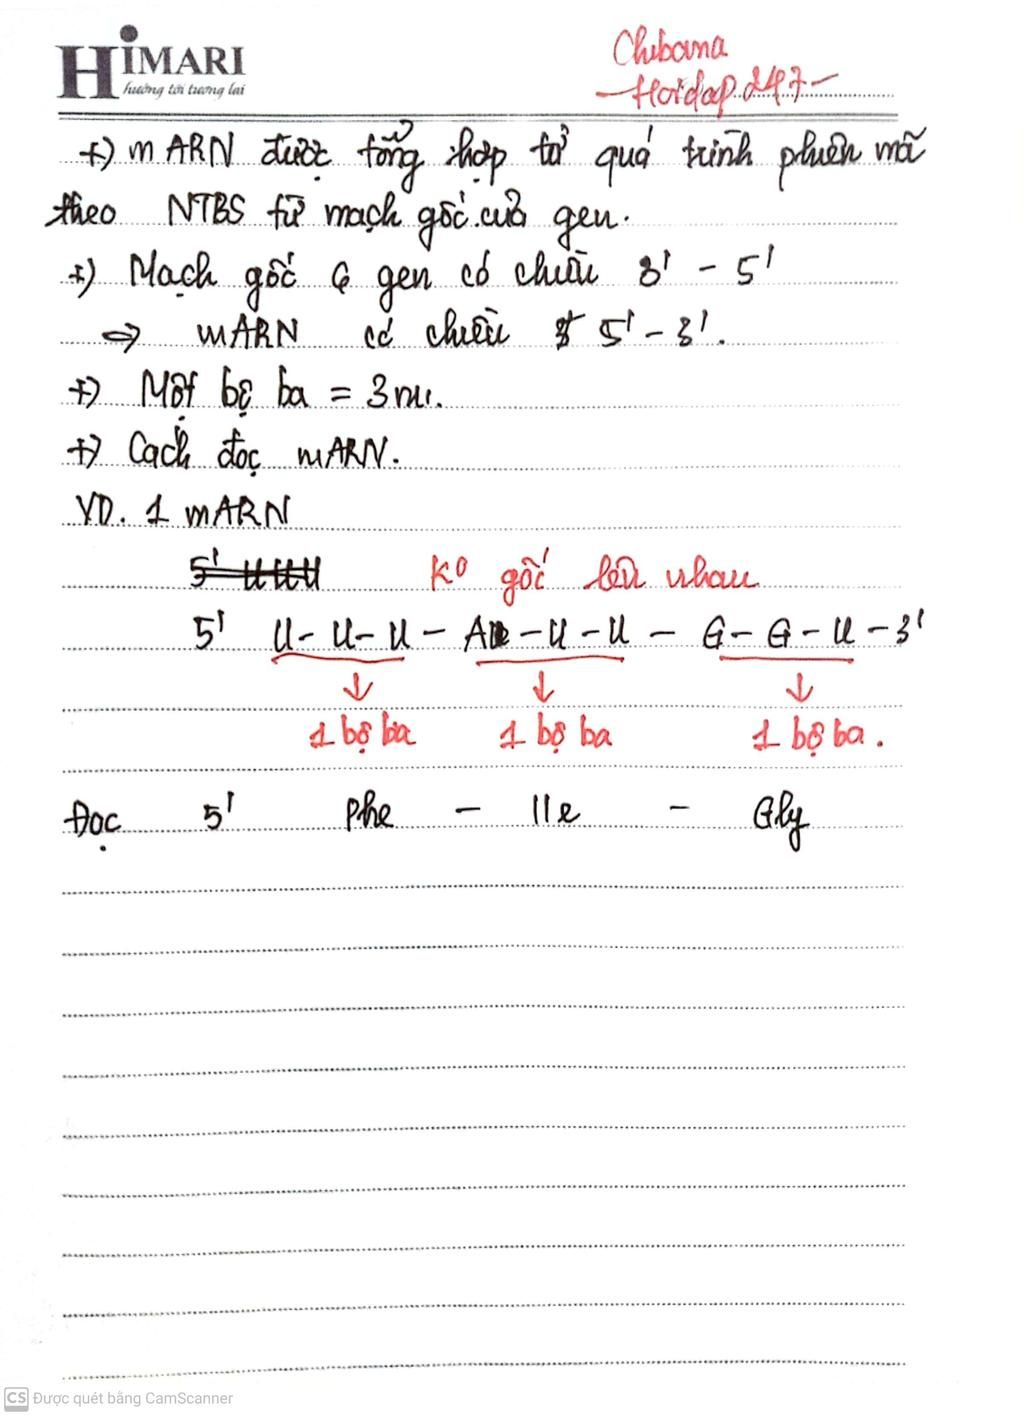 HIMARI
hướng tới tương lai
Chibana
-Hoidap247-
+) mARN được tổng hợp từ quá trình phiên mã
theo NTBS từ mạch gốc của gen.
+) Mạch gốc gen có chiều 3' - 5'
=> mARN có chiều 5' - 3'.
+) Một bộ ba = 3nu.
+) Cách đọc mARN.
VD. 1 mARN
5' U U U
Ko gốc lên nhau
5' U - U - U - A - U - U - G - G - U - 3'
↓ ↓ ↓
1 bộ ba 1 bộ ba 1 bộ ba.
Đọc 5' Phe - Ile - Gly
CS Được quét bằng CamScanner